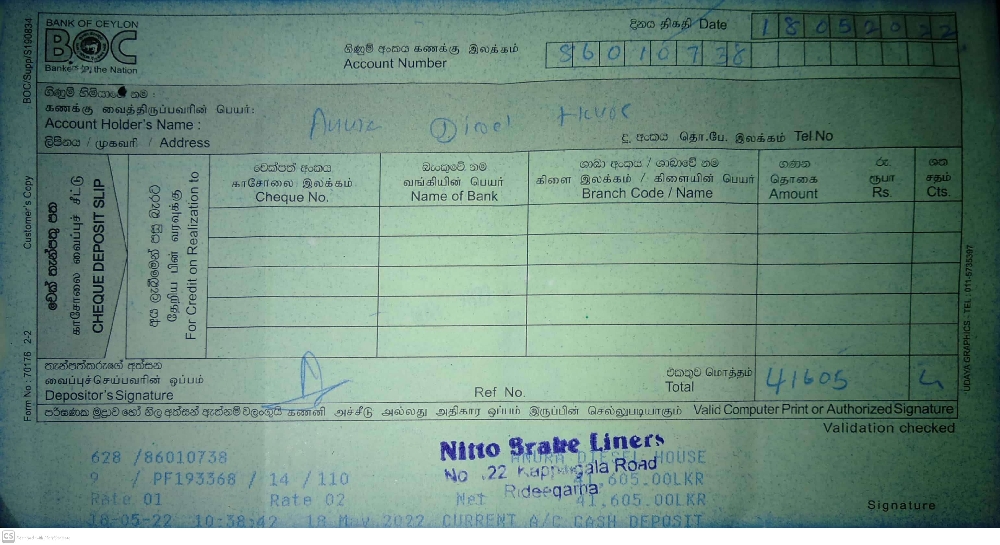 BANK OF CEYLON
BOC
Bankers to the Nation
දිනය திகதி Date 18052022
ගිණුම් අංකය கணக்கு இலக்கம்
Account Number 86010738
ගිණුම් හිමියාගේ නම :
கணக்கு வைத்திருப்பவரின் பெயர்:
Account Holder's Name : Anura Diesel House
ලිපිනය / முகவரி / Address
දු. අංකය தொ.பே. இலக்கம் Tel No
චෙක් තැන්පතු පත
காசோலை வைப்புச் சீட்டு
CHEQUE DEPOSIT SLIP
අය ලැබීමෙන් පසු බැරට
தேறிய பின் வரவுக்கு
For Credit on Realization to
චෙක්පත් අංකය
காசோலை இலக்கம்
Cheque No.
බැංකුවේ නම
வங்கியின் பெயர்
Name of Bank
ශාඛා අංකය / ශාඛාවේ නම
கிளை இலக்கம் / கிளையின் பெயர்
Branch Code / Name
ගණන
தொகை
Amount
රු.
ரூபா
Rs.
ශත
சதம்
Cts.
තැන්පත්කරුගේ අත්සන
வைப்புச்செய்பவரின் ஒப்பம்
Depositor's Signature
Ref No.
එකතුව மொத்தம்
Total 41605
පරිගණක මුද්‍රාව හෝ නිල අත්සන ඇත්නම් වලංගුයි கணனி அச்சீடு அல்லது அதிகார ஒப்பம் இருப்பின் செல்லுபடியாகும் Valid Computer Print or Authorized Signature
Validation checked
Nitto Brake Liners
No .22 Kappugala Road
Rideegama
628 /86010738 ANURA DIESEL HOUSE
9 / PF193368 / 14 / 110 41,605.00LKR
Rate 01 Rate 02 Net 41,605.00LKR
18-05-22 10:38:42 18 May 2022 CURRENT A/C CASH DEPOSIT
Signature
BOC/Supp/S190834
Customer's Copy
Form No : 70176 2-2
UDAYA GRAPHICS - TEL : 011-5735397
CS